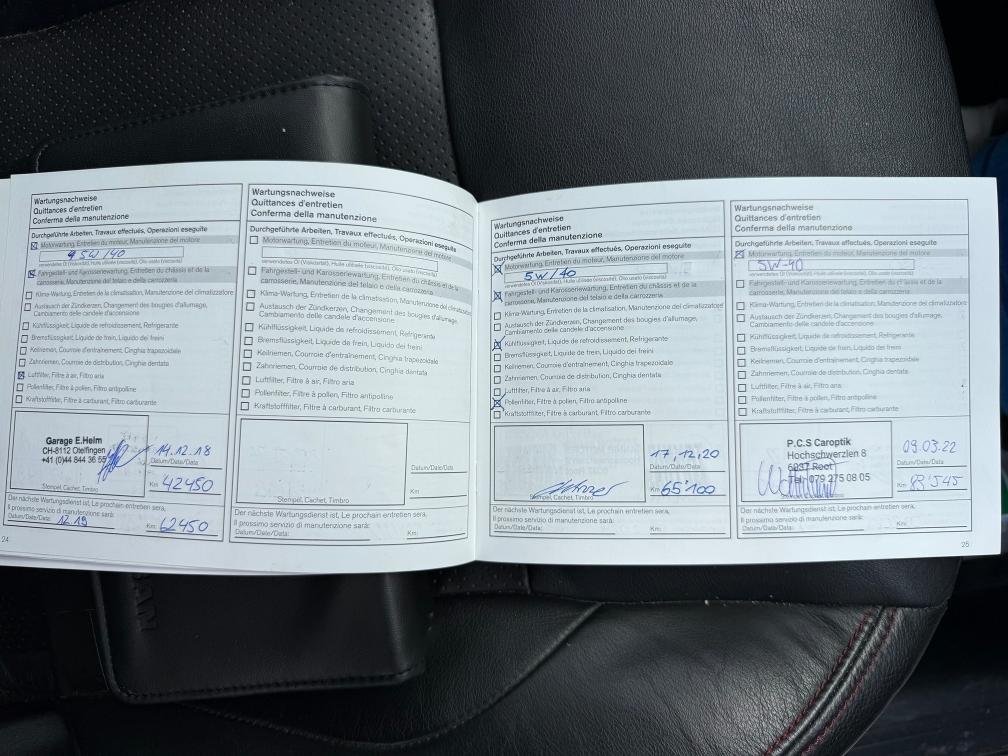 Wartungsnachweise
Quittances d'entretien
Conferma della manutenzione
Durchgeführte Arbeiten, Travaux effectués, Operazioni eseguite
Motorwartung, Entretien du moteur, Manutenzione del motore
5W/40
verwendetes Öl (Viskosität), Huile utilisée (viscosité), Olio usato (viscosità)
Fahrgestell- und Karosseriewartung, Entretien du châssis et de la
carrosserie, Manutenzione del telaio e della carrozzeria
Klima-Wartung, Entretien de la climatisation, Manutenzione del climatizzatore
Austausch der Zündkerzen, Changement des bougies d'allumage,
Cambiamento delle candele d'accensione
Kühlflüssigkeit, Liquide de refroidissement, Refrigerante
Bremsflüssigkeit, Liquide de frein, Liquido dei freini
Keilriemen, Courroie d'entraînement, Cinghia trapezoidale
Zahnriemen, Courroie de distribution, Cinghia dentata
Luftfilter, Filtre à air, Filtro aria
Pollenfilter, Filtre à pollen, Filtro antipolline
Kraftstofffilter, Filtre à carburant, Filtro carburante
Garage E.Helm
CH-8112 Otelfingen
+41 (0)44 844 36 55
Stempel, Cachet, Timbro
14.12.18
Datum/Date/Data
Km 42450
Der nächste Wartungsdienst ist, Le prochain entretien sera,
Il prossimo servizio di manutenzione sarà:
Datum/Date/Data: 12.19 Km: 62450
24
Wartungsnachweise
Quittances d'entretien
Conferma della manutenzione
Durchgeführte Arbeiten, Travaux effectués, Operazioni eseguite
Motorwartung, Entretien du moteur, Manutenzione del motore
verwendetes Öl (Viskosität), Huile utilisée (viscosité), Olio usato (viscosità)
Fahrgestell- und Karosseriewartung, Entretien du châssis et de la
carrosserie, Manutenzione del telaio e della carrozzeria
Klima-Wartung, Entretien de la climatisation, Manutenzione del climatizzatore
Austausch der Zündkerzen, Changement des bougies d'allumage,
Cambiamento delle candele d'accensione
Kühlflüssigkeit, Liquide de refroidissement, Refrigerante
Bremsflüssigkeit, Liquide de frein, Liquido dei freini
Keilriemen, Courroie d'entraînement, Cinghia trapezoidale
Zahnriemen, Courroie de distribution, Cinghia dentata
Luftfilter, Filtre à air, Filtro aria
Pollenfilter, Filtre à pollen, Filtro antipolline
Kraftstofffilter, Filtre à carburant, Filtro carburante
Stempel, Cachet, Timbro
Datum/Date/Data
Km
Der nächste Wartungsdienst ist, Le prochain entretien sera,
Il prossimo servizio di manutenzione sarà:
Datum/Date/Data: Km:
Wartungsnachweise
Quittances d'entretien
Conferma della manutenzione
Durchgeführte Arbeiten, Travaux effectués, Operazioni eseguite
Motorwartung, Entretien du moteur, Manutenzione del motore
5W/40
verwendetes Öl (Viskosität), Huile utilisée (viscosité), Olio usato (viscosità)
Fahrgestell- und Karosseriewartung, Entretien du châssis et de la
carrosserie, Manutenzione del telaio e della carrozzeria
Klima-Wartung, Entretien de la climatisation, Manutenzione del climatizzatore
Austausch der Zündkerzen, Changement des bougies d'allumage,
Cambiamento delle candele d'accensione
Kühlflüssigkeit, Liquide de refroidissement, Refrigerante
Bremsflüssigkeit, Liquide de frein, Liquido dei freini
Keilriemen, Courroie d'entraînement, Cinghia trapezoidale
Zahnriemen, Courroie de distribution, Cinghia dentata
Luftfilter, Filtre à air, Filtro aria
Pollenfilter, Filtre à pollen, Filtro antipolline
Kraftstofffilter, Filtre à carburant, Filtro carburante
Stempel, Cachet, Timbro
17,12,20
Datum/Date/Data
Km 65'100
Der nächste Wartungsdienst ist, Le prochain entretien sera,
Il prossimo servizio di manutenzione sarà:
Datum/Date/Data: Km:
Wartungsnachweise
Quittances d'entretien
Conferma della manutenzione
Durchgeführte Arbeiten, Travaux effectués, Operazioni eseguite
Motorwartung, Entretien du moteur, Manutenzione del motore
5W-40
verwendetes Öl (Viskosität), Huile utilisée (viscosité), Olio usato (viscosità)
Fahrgestell- und Karosseriewartung, Entretien du châssis et de la
carrosserie, Manutenzione del telaio e della carrozzeria
Klima-Wartung, Entretien de la climatisation, Manutenzione del climatizzatore
Austausch der Zündkerzen, Changement des bougies d'allumage,
Cambiamento delle candele d'accensione
Kühlflüssigkeit, Liquide de refroidissement, Refrigerante
Bremsflüssigkeit, Liquide de frein, Liquido dei freini
Keilriemen, Courroie d'entraînement, Cinghia trapezoidale
Zahnriemen, Courroie de distribution, Cinghia dentata
Luftfilter, Filtre à air, Filtro aria
Pollenfilter, Filtre à pollen, Filtro antipolline
Kraftstofffilter, Filtre à carburant, Filtro carburante
P.C.S Caroptik
Hochschwerzlen 8
6037 Root
Tel. 079 275 08 05
09.03.22
Datum/Date/Data
Km
Der nächste Wartungsdienst ist, Le prochain entretien sera,
Il prossimo servizio di manutenzione sarà:
Datum/Date/Data: Km:
25